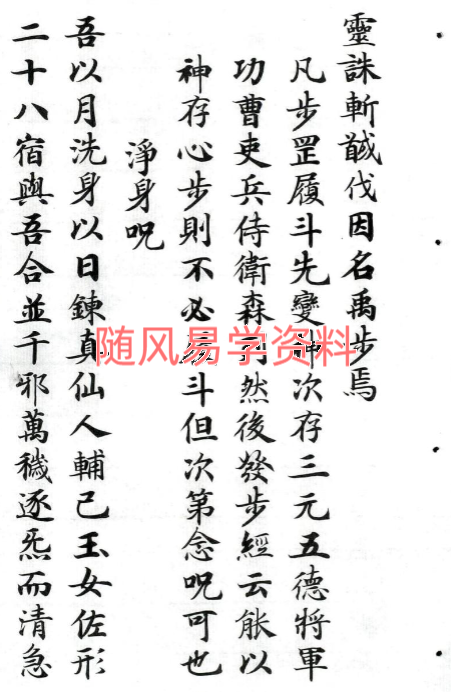 靈誅斬馘伐因名禹步焉
凡步罡履斗先變神次存三元五德將軍
功曹吏兵侍衛森列然後發步經云能以
神存心步則不必履斗但次第念呪可也
淨身呪
吾以月洗身以日鍊真仙人輔己玉女佐形
二十八宿與吾合並千邪萬穢逐炁而清急
随风易学资料